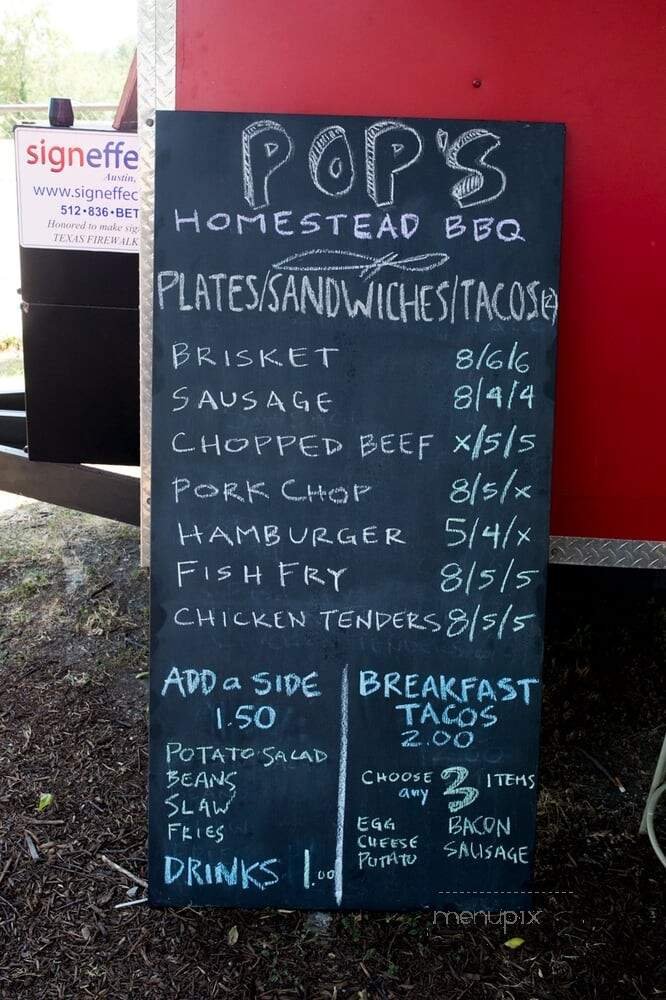 signeffe
Austin,
www.signeffec
512•836•BET
Honored to make sig
TEXAS FIREWALK
POP'S
HOMESTEAD BBQ
PLATES/SANDWICHES/TACOS(2)
BRISKET 8/6/6
SAUSAGE 8/4/4
CHOPPED BEEF x/5/5
PORK CHOP 8/5/x
HAMBURGER 5/4/x
FISH FRY 8/5/5
CHICKEN TENDERS 8/5/5
ADD a SIDE
1.50
POTATO SALAD
BEANS
SLAW
FRIES
DRINKS 1.00
BREAKFAST
TACOS
2.00
CHOOSE any 3 ITEMS
EGG
CHEESE
POTATO
BACON
SAUSAGE
menupix